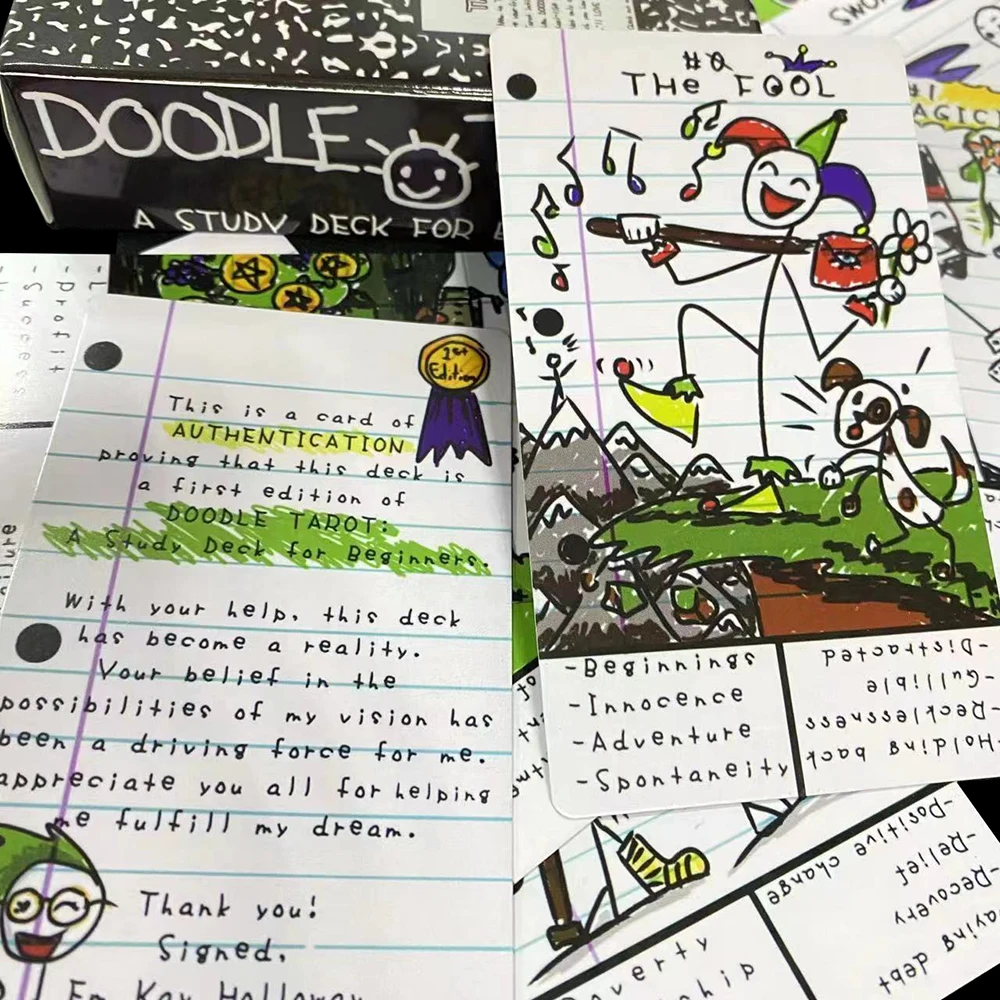 DOODLE
A STUDY DECK FOR
1st
Edition
This is a card of
AUTHENTICATION
proving that this deck is
a first edition of
DOODLE TAROT:
A Study Deck for Beginners.
With your help, this deck
has become a reality.
Your belief in the
possibilities of my vision has
been a driving force for me.
appreciate you all for helping
me fulfill my dream.
Thank you!
Signed,
Em Kay Holloway
#0
THe FOOL
-Beginnings
-Innocence
-Adventure
-Spontaneity
-Holding back
-Recklessness
-Gullible
-Distracted
#1
-Positive change
-Relief
-Recovery
debt